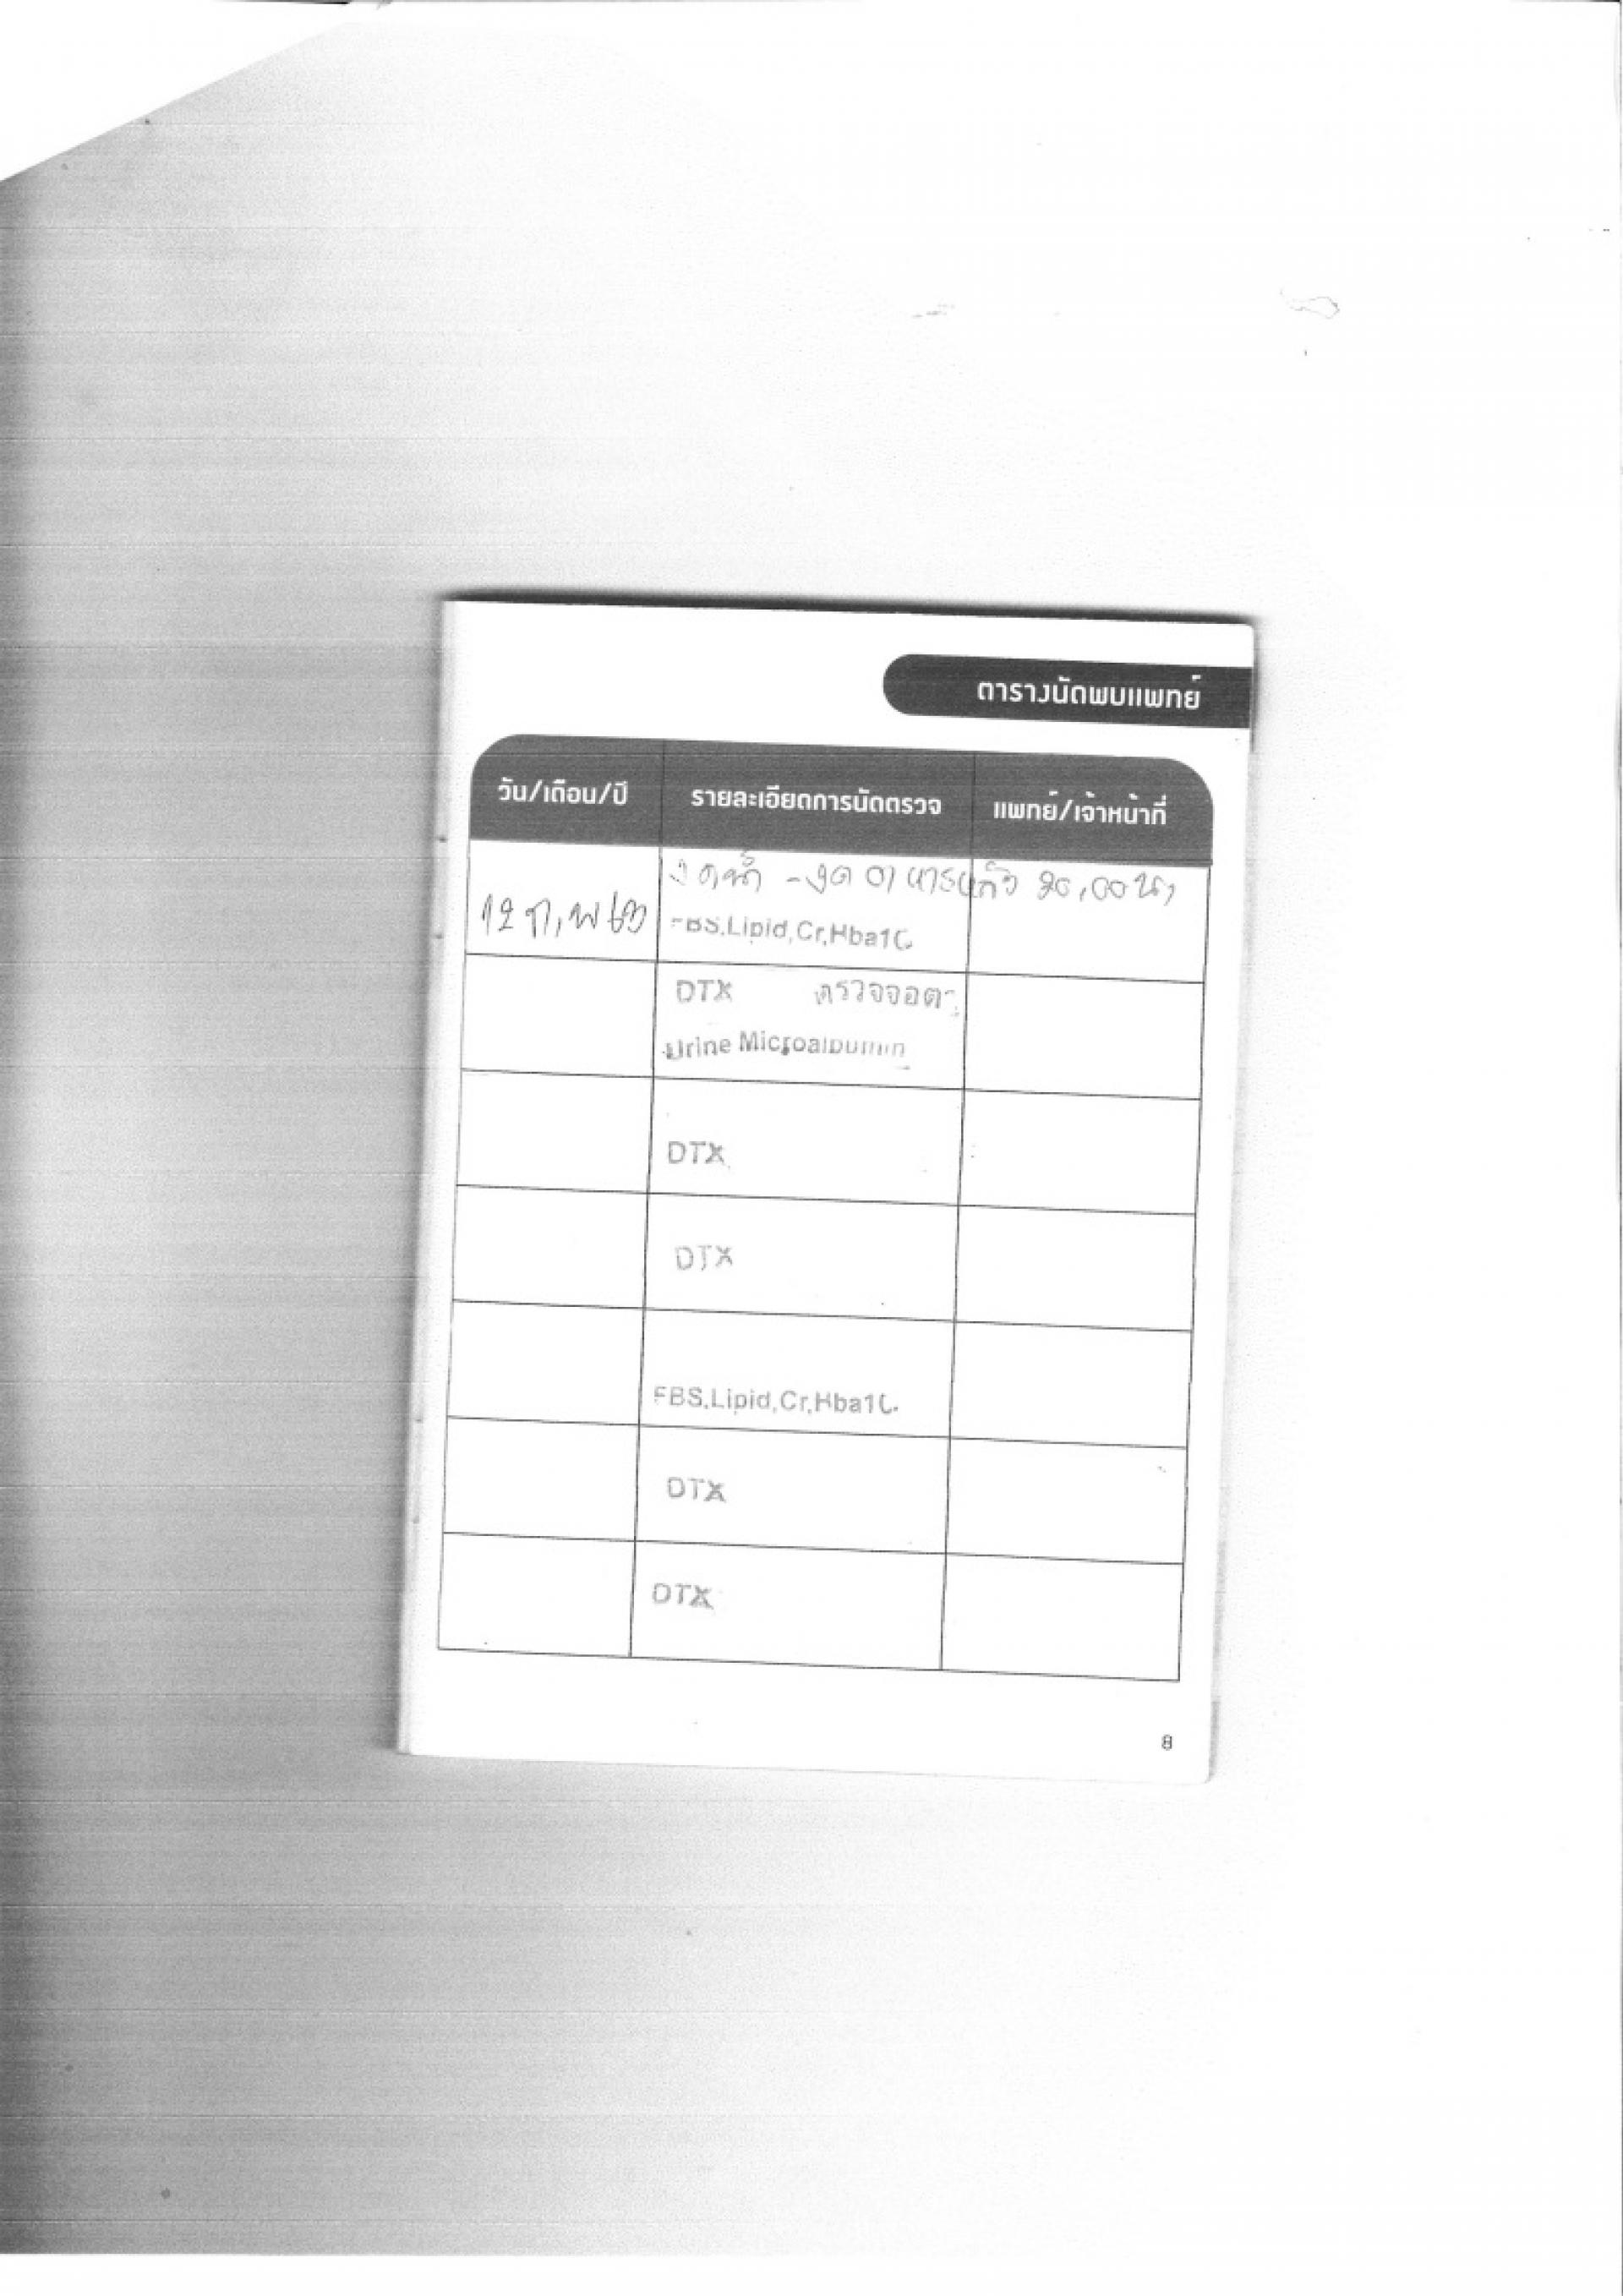 ตารางนัดพบแพทย์
วัน/เดือน/ปี รายละเอียดการนัดตรวจ แพทย์/เจ้าหน้าที่
งดน้ำ - งดอาหาร 20.00 น.
12 ก.พ 63 FBS,Lipid,Cr,Hba1C
DTX ตรวจจอตา
Urine Microalbumin
DTX
DTX
FBS,Lipid,Cr,Hba1C
DTX
DTX
8